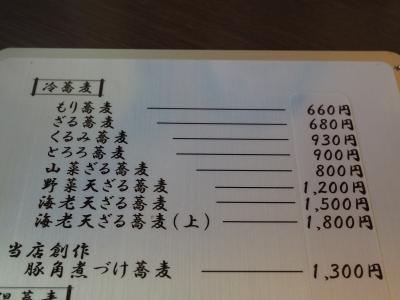 冷蕎麦
もり蕎麦 660円
ざる蕎麦 680円
くるみ蕎麦 930円
とろろ蕎麦 900円
山菜ざる蕎麦 800円
野菜天ざる蕎麦 1,200円
海老天ざる蕎麦 1,500円
海老天ざる蕎麦(上) 1,800円
当店創作
豚角煮づけ蕎麦 1,300円